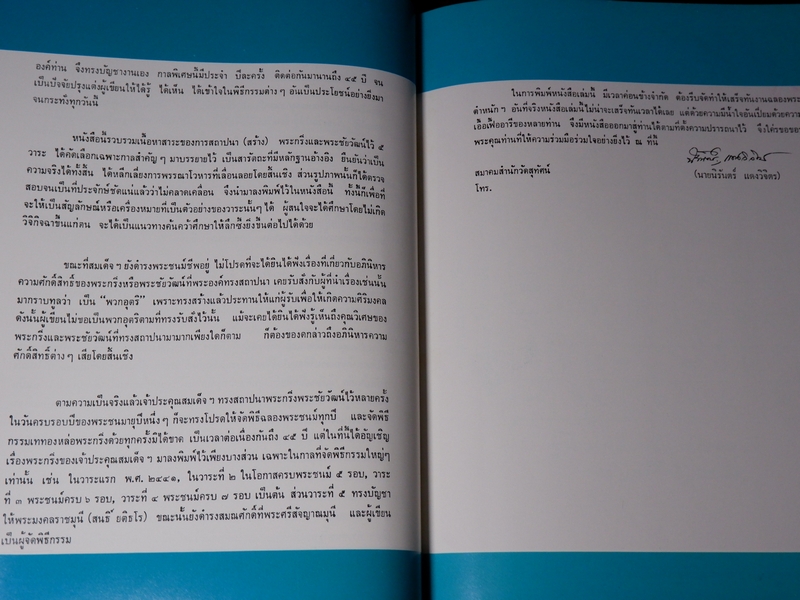 องค์ท่าน จึงทรงบัญชางานเอง กาลพิเศษนี้มีประจำ ปีละครั้ง ติดต่อกันมานานถึง ๔๕ ปี จน
เป็นปัจจัยปรุงแต่งผู้เขียนให้ได้รู้ ได้เห็น ได้เข้าใจในพิธีกรรมต่าง ๆ อันเป็นประโยชน์อย่างยิ่งมา
จนกระทั่งทุกวันนี้
หนังสือนี้รวบรวมเนื้อหาสาระของการสถาปนา (สร้าง) พระกริ่งและพระชัยวัฒน์ไว้ ๕
วาระ ได้คัดเลือกเฉพาะกาลสำคัญ ๆ มาบรรยายไว้ เป็นสารัตถะที่มีหลักฐานอ้างอิง ยืนยันว่าเป็น
ความจริงได้ทั้งสิ้น ได้หลีกเลี่ยงการพรรณาโวหารที่เลื่อนลอยโดยสิ้นเชิง ส่วนรูปภาพนั้นก็ได้ตรวจ
สอบจนเป็นที่ประจักษ์ชัดแน่แล้วว่าไม่คลาดเคลื่อน จึงนำมาลงพิมพ์ไว้ในหนังสือนี้ ทั้งนี้ก็เพื่อที่
จะให้เป็นสัญลักษณ์หรือเครื่องหมายที่เป็นตัวอย่างของวาระนั้นๆ ได้ ผู้สนใจจะได้ศึกษาโดยไม่เกิด
วิจิกิจฉาขึ้นแก่ตน จะได้เป็นแนวทางค้นคว้าศึกษาให้ลึกซึ้งยิ่งขึ้นต่อไปได้ด้วย
ขณะที่สมเด็จ ฯ ยังดำรงพระชนม์ชีพอยู่ ไม่โปรดที่จะได้ยินได้ฟังเรื่องที่เกี่ยวกับอภินิหาร
ความศักดิ์สิทธิ์ของพระกริ่งหรือพระชัยวัฒน์ที่พระองค์ทรงสถาปนา เคยรับสั่งกับผู้ที่นำเรื่องเช่นนั้น
มากราบทูลว่า เป็น "พวกอุตริ" เพราะทรงสร้างแล้วประทานให้แก่ผู้รับเพื่อให้เกิดความศิริมงคล
ดังนั้นผู้เขียนไม่ขอเป็นพวกอุตริตามที่ทรงรับสั่งไว้นั้น แม้จะเคยได้ยินได้ฟังรู้เห็นถึงคุณวิเศษของ
พระกริ่งและพระชัยวัฒน์ที่ทรงสถาปนามามากเพียงใดก็ตาม ก็ต้องของดกล่าวถึงอภินิหารความ
ศักดิ์สิทธิ์ต่าง ๆ เสียโดยสิ้นเชิง
ตามความเป็นจริงแล้วเจ้าประคุณสมเด็จ ฯ ทรงสถาปนาพระกริ่งพระชัยวัฒน์ไว้หลายครั้ง
ในวันครบรอบปีของพระชนมายุปีหนึ่ง ๆ ก็จะทรงโปรดให้จัดพิธีฉลองพระชนม์ทุกปี และจัดพิธี
กรรมเททองหล่อพระกริ่งด้วยทุกครั้งมิได้ขาด เป็นเวลาต่อเนื่องกันถึง ๔๕ ปี แต่ในที่นี้ได้อัญเชิญ
เรื่องพระกริ่งของเจ้าประคุณสมเด็จ ฯ มาลงพิมพ์ไว้เพียงบางส่วน เฉพาะในกาลที่จัดพิธีกรรมใหญ่ๆ
เท่านั้น เช่น ในวาระแรก พ.ศ. ๒๔๔๑, ในวาระที่ ๒ ในโอกาสครบพระชนม์ ๕ รอบ, วาระ
ที่ ๓ พระชนม์ครบ ๖ รอบ, วาระที่ ๔ พระชนม์ครบ ๗ รอบ เป็นต้น ส่วนวาระที่ ๕ ทรงบัญชา
ให้พระมงคลราชมุนี (สนธิ์ ยติธโร) ขณะนั้นยังดำรงสมณศักดิ์ที่พระศรีสัจญาณมุนี และผู้เขียน
เป็นผู้จัดพิธีกรรม
ในการพิมพ์หนังสือเล่มนี้ มีเวลาค่อนข้างจำกัด ต้องรีบจัดทำให้เสร็จทันงานฉลองพระ
ตำหนักฯ อันที่จริงหนังสือเล่มนี้ไม่น่าจะเสร็จทันเวลาได้เลย แต่ด้วยความมีน้ำใจอันเปี่ยมด้วยความ
เอื้อเฟื้ออารีของหลายท่าน จึงมีหนังสือออกมาสู่ท่านได้ตามที่ตั้งความปรารถนาไว้ จึงใคร่ขอขอบ
พระคุณท่านที่ให้ความร่วมมือร่วมใจอย่างยิ่งไว้ ณ ที่นี้
สมาคมสำนักวัดสุทัศน์
(นายนิรันตร์ แดงวิจิตร)
โทร.